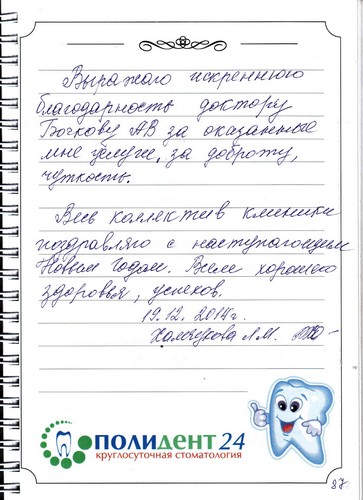 Выражаю искреннюю
благодарность доктору
Бочкову АВ за оказанные
мне услуги, за доброту,
чуткость.
Весь коллектив клиники
поздравляю с наступающим
Новым годом. Всем хорошего
здоровья, успехов.
19.12.2014г.
Л.М.
ПОЛИДЕНТ 24
круглосуточная стоматология
87